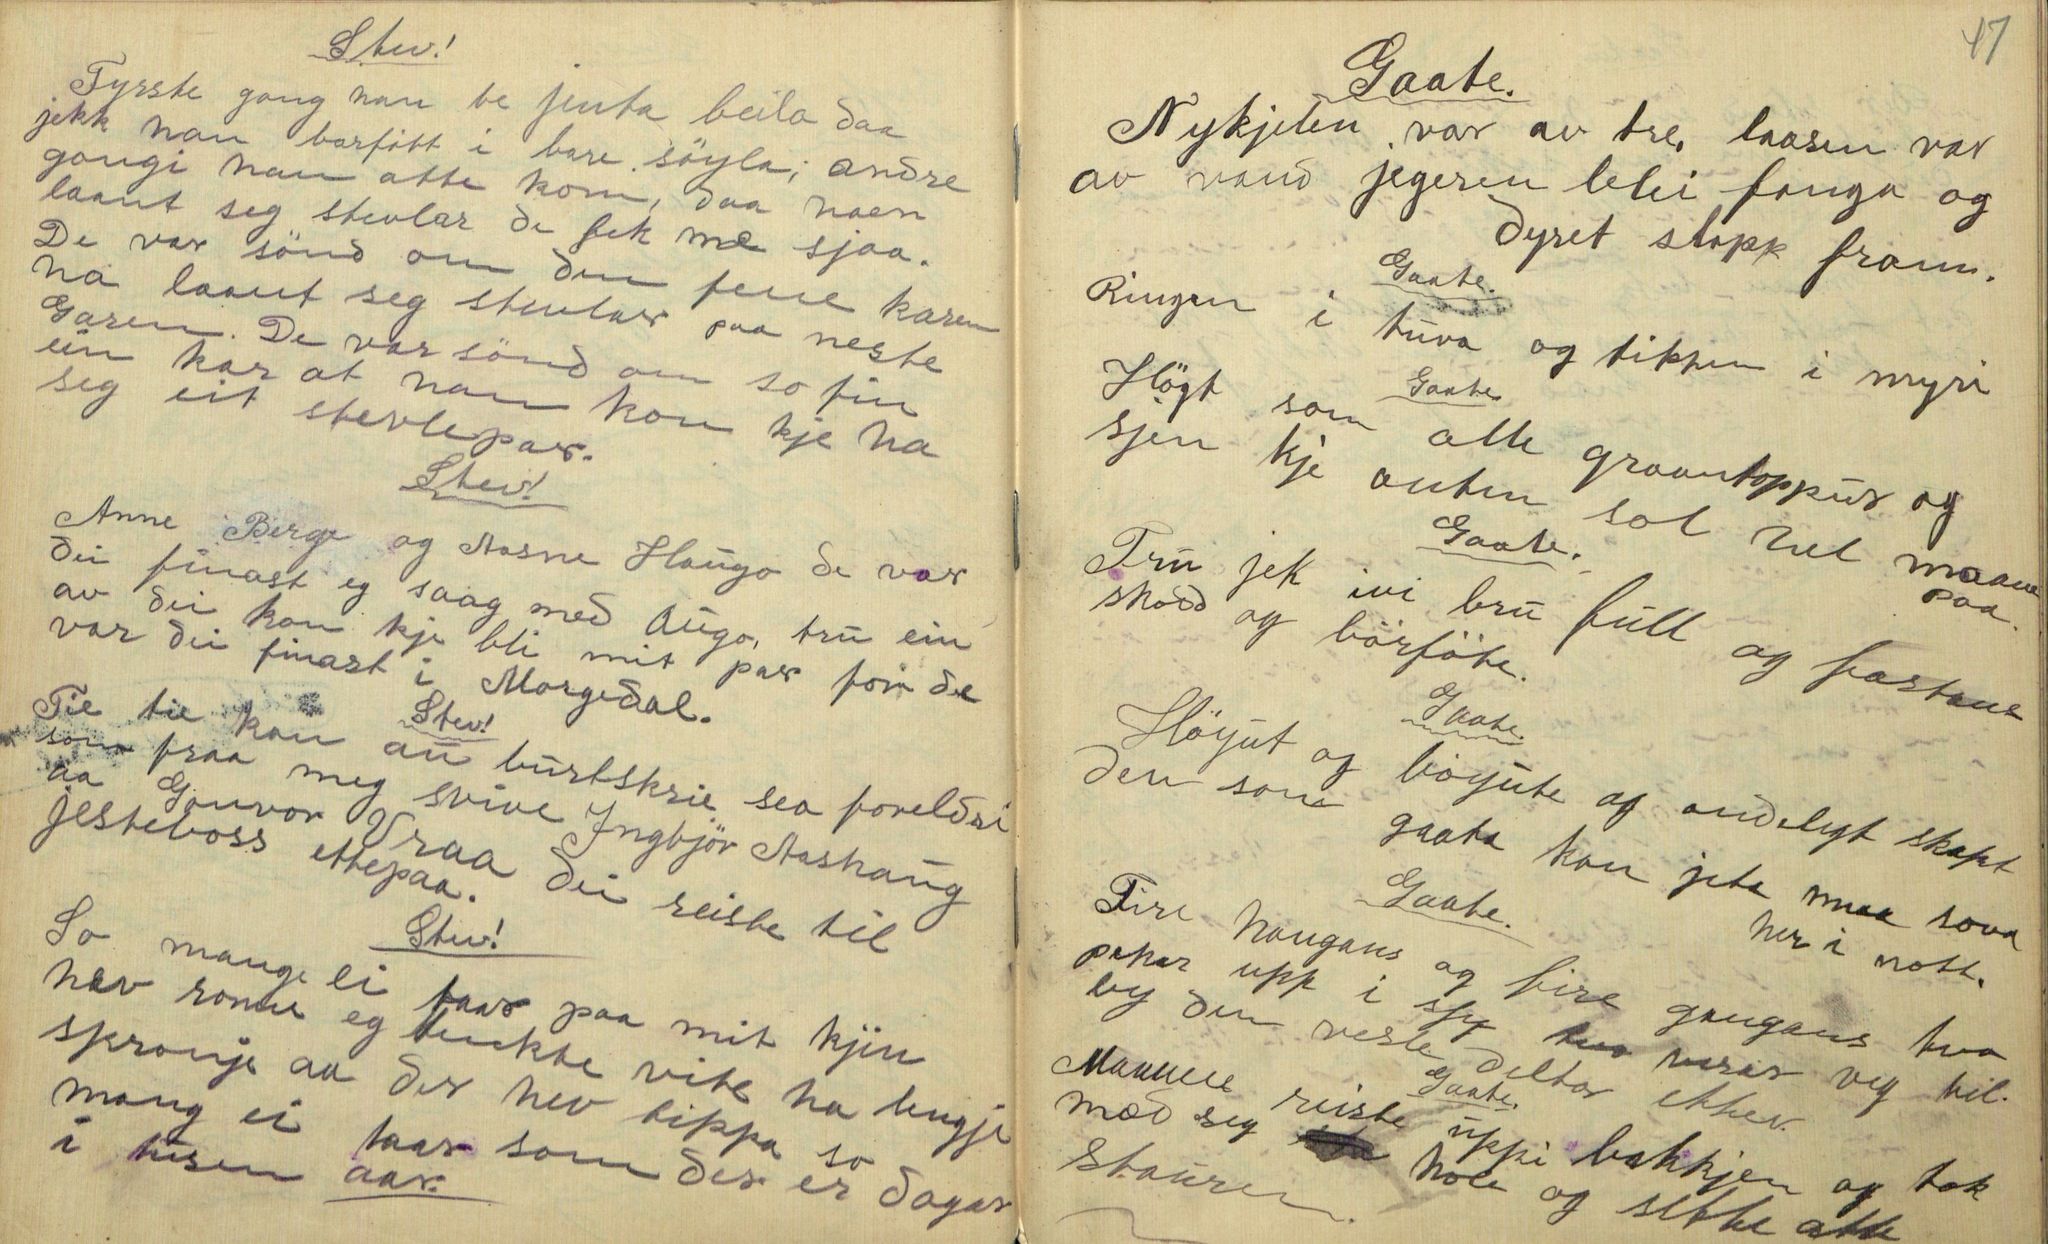 Stev!
Fyrste gong han te jenta beila daa
jekk han barføtt i bare söyla; andre
gongi han atte kom, daa haen
laant seg stevlar de fek me sjaa.
De var sönd om den fene karen
ha laant seg stevlar paa neste
Garen. De var sönd om so fin
ein kar at han kon kje ha
seg eit stevlepar.
Stev!
Anne Berge og Aasne Haugo de var
dei finast eg saag med Augo, tru ein
av dei kan kje bli mit par for de
var dei finast i Morgedal.
Stev!
Tie tie kan au burtskrie sea foreldri
som fraa meg svive Ingbjör Aashaug
aa Gonvor Vraa dei reiste til
jesteboss ettepaa.
Stev!
So mange ei taar paa mit kjin
hev ronne eg tenkte vite ha lengje
spronje aa der hev tippa so
mang ei taar som der er dagar
i tusen aar.
47
Gaate.
Nykjelen var av tre, laasen var
av vand jegeren blei fanga og
dyret slapp fram.
Gaate.
Ringen i tuva og tikpen i myri
Gaate
Högt som alle graantoppur og
sjen kje anten sol hel maane
paa.
Gaate.
Fru jek ivi bru full og fastans
skodd og börföte.
Gaate.
Höyut og böyute og undeligt skapt
den som gaata kan jeta maa sova
her i nott.
Gaate.
Fire hangans og fire gangans tvo
pekar upp i sky viser veg til
by den vesle deltar etter.
Gaate.
Mannen reiste uppi bakkjen og tok
med seg hole og sette atte
Stauren.